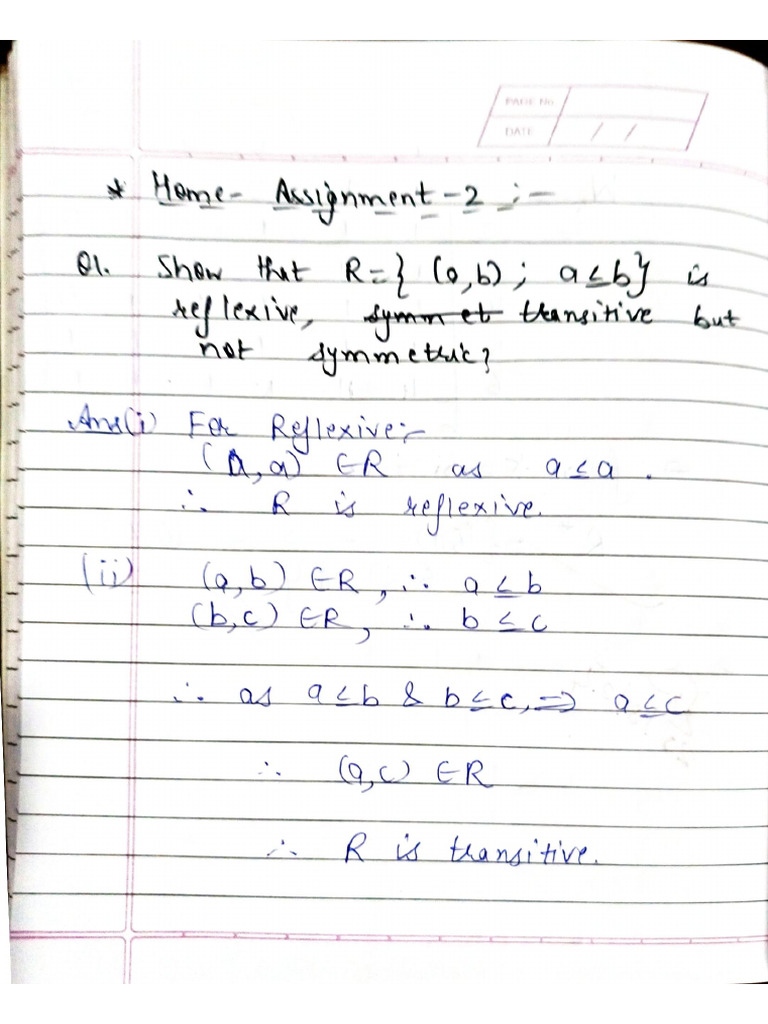 PAGE No.
DATE / /
* Home - Assignment - 2 : -
Q1. Show that R = { (a,b) ; a ≤ b} is
reflexive, symmet transitive but
not symmetric?
Ans(i) For Reflexive:-
(a, a) ∈R as a ≤ a .
∴ R is reflexive.
(ii) (a, b) ∈R , ∴ a ≤ b
(b, c) ∈R, ∴ b ≤ c
∴ as a ≤ b & b ≤ c, ⇒ a ≤ c
∴ (a, c) ∈R
∴ R is transitive.